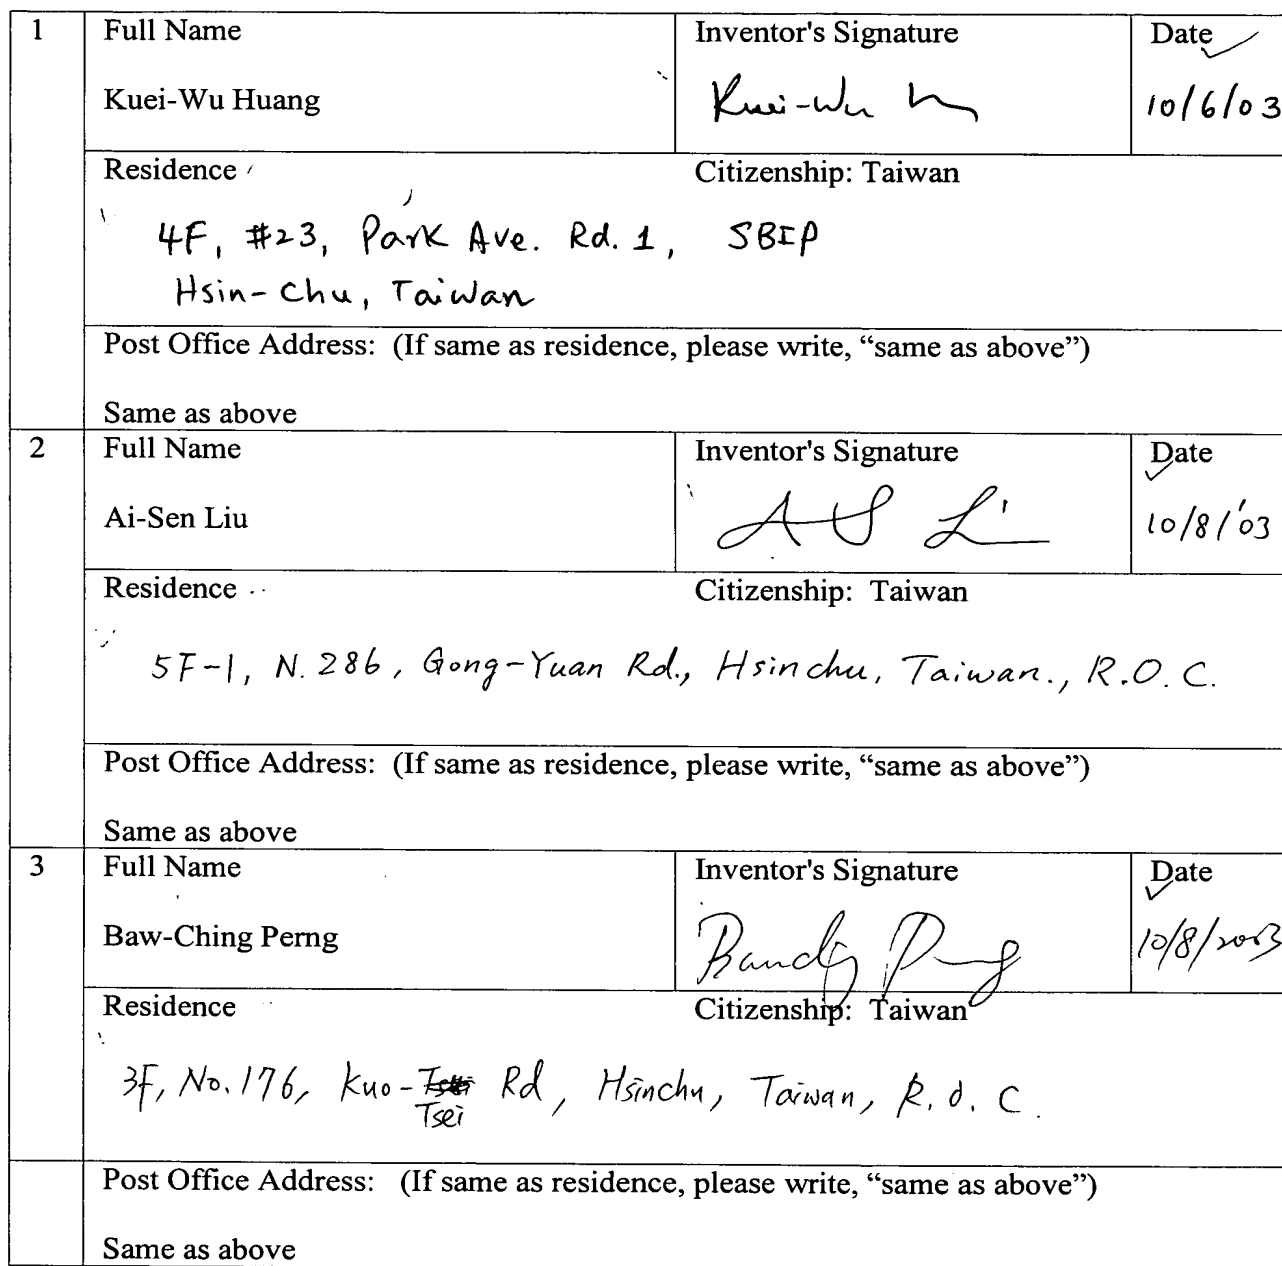 1 Full Name Inventor's Signature Date
Kuei-Wu Huang Kuei-Wu 10/6/03
Residence Citizenship: Taiwan
4F, #23, Park Ave. Rd. 1, SBIP
Hsin-chu, Taiwan
Post Office Address: (If same as residence, please write, “same as above”)
Same as above
2 Full Name Inventor's Signature Date
Ai-Sen Liu A S Li 10/8/'03
Residence Citizenship: Taiwan
5F-1, N. 286, Gong-Yuan Rd., Hsinchu, Taiwan., R.O.C.
Post Office Address: (If same as residence, please write, “same as above”)
Same as above
3 Full Name Inventor's Signature Date
Baw-Ching Perng 10/8/2003
Residence Citizenship: Taiwan
3F, No. 176, Kuo- Rd, Hsinchu, Taiwan, R.O.C.
Tsei
Post Office Address: (If same as residence, please write, “same as above”)
Same as above